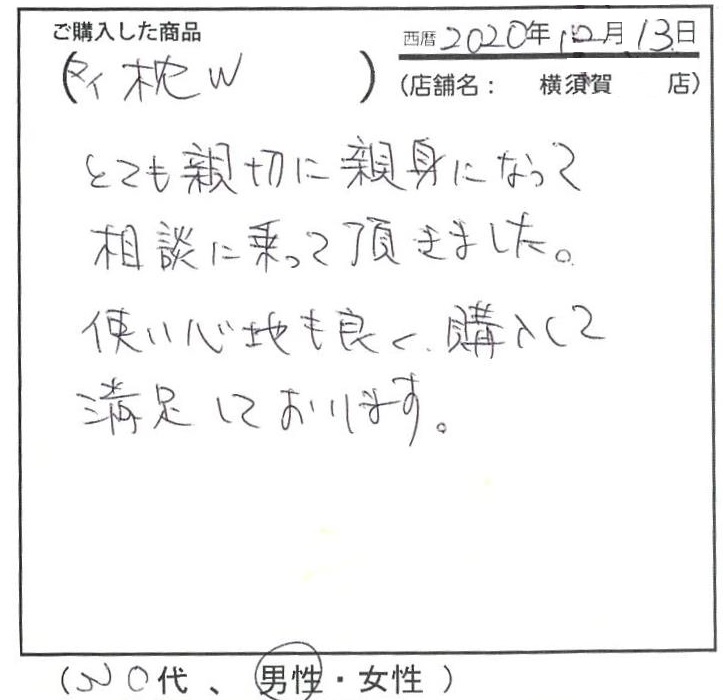 ご購入した商品
西暦2020年12月13日
(タイ枕W)
(店舗名: 横須賀 店)
とても親切に親身になって
相談に乗って頂きました。
使い心地も良く、購入して
満足しております。
(30代、男性・女性)